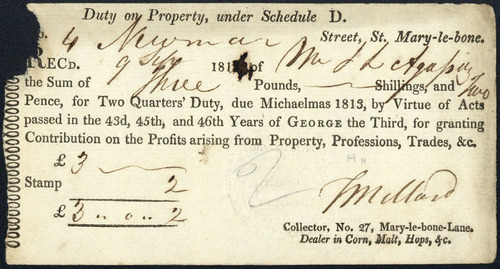 Duty on Property, under Schedule D.
o. 4 Newman Street, St. Mary-le-bone.
RECD. 181 of Mr
the Sum of Three Pounds, Shillings, and Two
Pence, for Two Quarters' Duty, due Michaelmas 1813, by Virtue of Acts
passed in the 43d, 45th, and 46th Years of GEORGE the Third, for granting
Contribution on the Profits arising from Property, Professions, Trades, &c.
£ 3
Stamp 2
£ 3 .. 0 .. 2
Collector, No. 27, Mary-le-bone-Lane.
Dealer in Corn, Malt, Hops, &c.